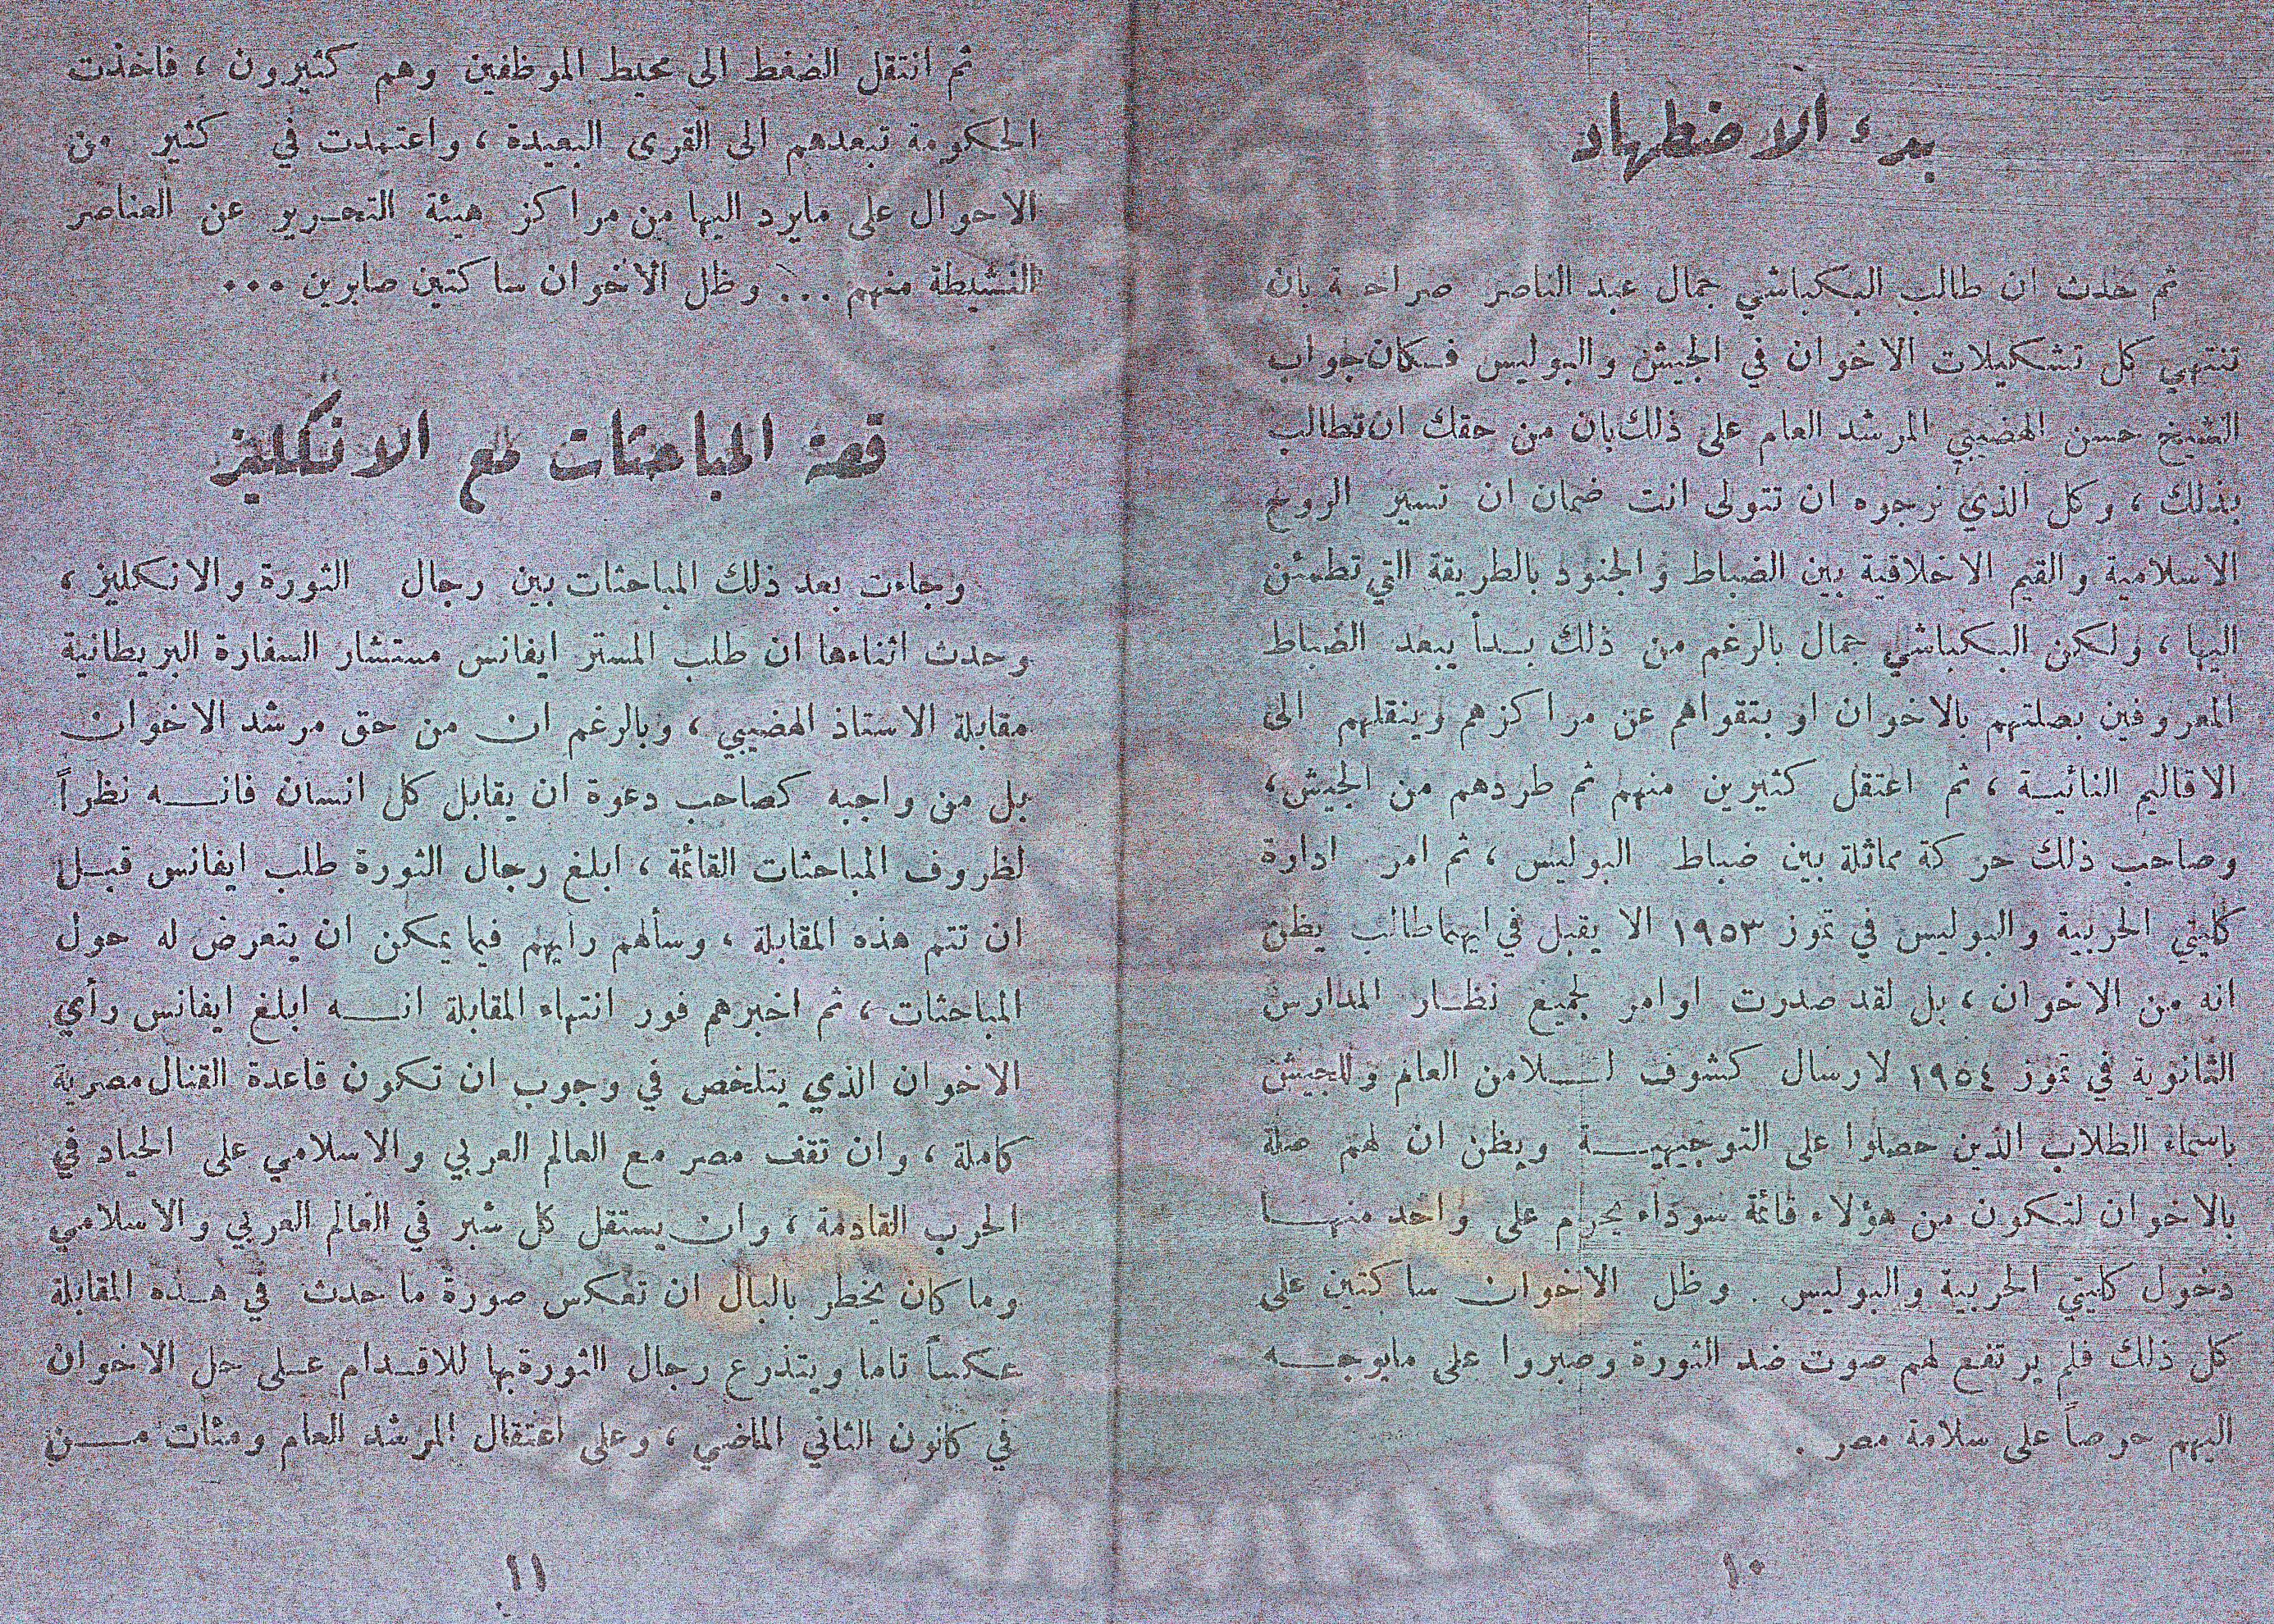 بدء الاضطهاد
ثم حدث ان طالب البكباشي جمال عبد الناصر صراحة بان
تنتهي كل تشكيلات الاخوان في الجيش والبوليس فكان جواب
الشيخ حسن الهضيبي المرشد العام على ذلك بان من حقك ان تطالب
بذلك ، وكل الذي نرجوه ان تتولى انت ضمان ان تسير الروح
الاسلامية والقيم الاخلاقية بين الضباط والجنود بالطريقة التي تطمئن
اليها ، ولكن البكباشي جمال بالرغم من ذلك بدأ يبعد الضباط
المعروفين بصلتهم بالاخوان او بتقواهم عن مراكزهم وينقلهم الى
الاقاليم النائية ، ثم اعتقل كثيرين منهم ثم طردهم من الجيش ،
وصاحب ذلك حركة مماثلة بين ضباط البوليس ، ثم امر ادارة
كليتي الحربية والبوليس في تموز ١٩٥٣ الا يقبل في ايهما طالب يظن
انه من الاخوان ، بل لقد صدرت اوامر لجميع نظار المدارس
الثانوية في تموز ١٩٥٤ لارسال كشوف للامن العام وللجيش
باسماء الطلاب الذين حصلوا على التوجيهية ويظن ان لهم صلة
بالاخوان لتكون من هؤلاء قائمة سوداء يحرم على واحد منها
دخول كليتي الحربية والبوليس . وظل الاخوان ساكتين على
كل ذلك فلم يرتفع لهم صوت ضد الثورة وصبروا على مايوجه
اليهم حرصاً على سلامة مصر .
١٠
ثم انتقل الضغط الى محيط الموظفين وهم كثيرون ، فاخذت
الحكومة تبعدهم الى القرى البعيدة ، واعتمدت في كثير من
الاحوال على مايرد اليها من مراكز هيئة التحرير عن العناصر
النشيطة منهم ... وظل الاخوان ساكتين صابرين ...
قصة المباحثات مع الانكليز
وجاءت بعد ذلك المباحثات بين رجال الثورة والانكليز ،
وحدث اثناءها ان طلب المستر ايفانس مستشار السفارة البريطانية
مقابلة الاستاذ الهضيبي ، وبالرغم ان من حق مرشد الاخوان
بل من واجبه كصاحب دعوة ان يقابل كل انسان فانه نظراً
لظروف المباحثات القائمة ، ابلغ رجال الثورة طلب ايفانس قبل
ان تتم هذه المقابلة ، وسألهم رأيهم فيما يمكن ان يتعرض له حول
المباحثات ، ثم اخبرهم فور انتهاء المقابلة انه ابلغ ايفانس رأي
الاخوان الذي يتلخص في وجوب ان تكون قاعدة القنال مصرية
كاملة ، وان تقف مصر مع العالم العربي والاسلامي على الحياد في
الحرب القادمة ، وان يستقل كل شبر في العالم العربي والاسلامي
وما كان يخطر بالبال ان تعكس صورة ما حدث في هذه المقابلة
عكساً تاما ويتذرع رجال الثورة بها للاقدام على حل الاخوان
في كانون الثاني الماضي ، وعلى اعتقال المرشد العام ومئات من
١١